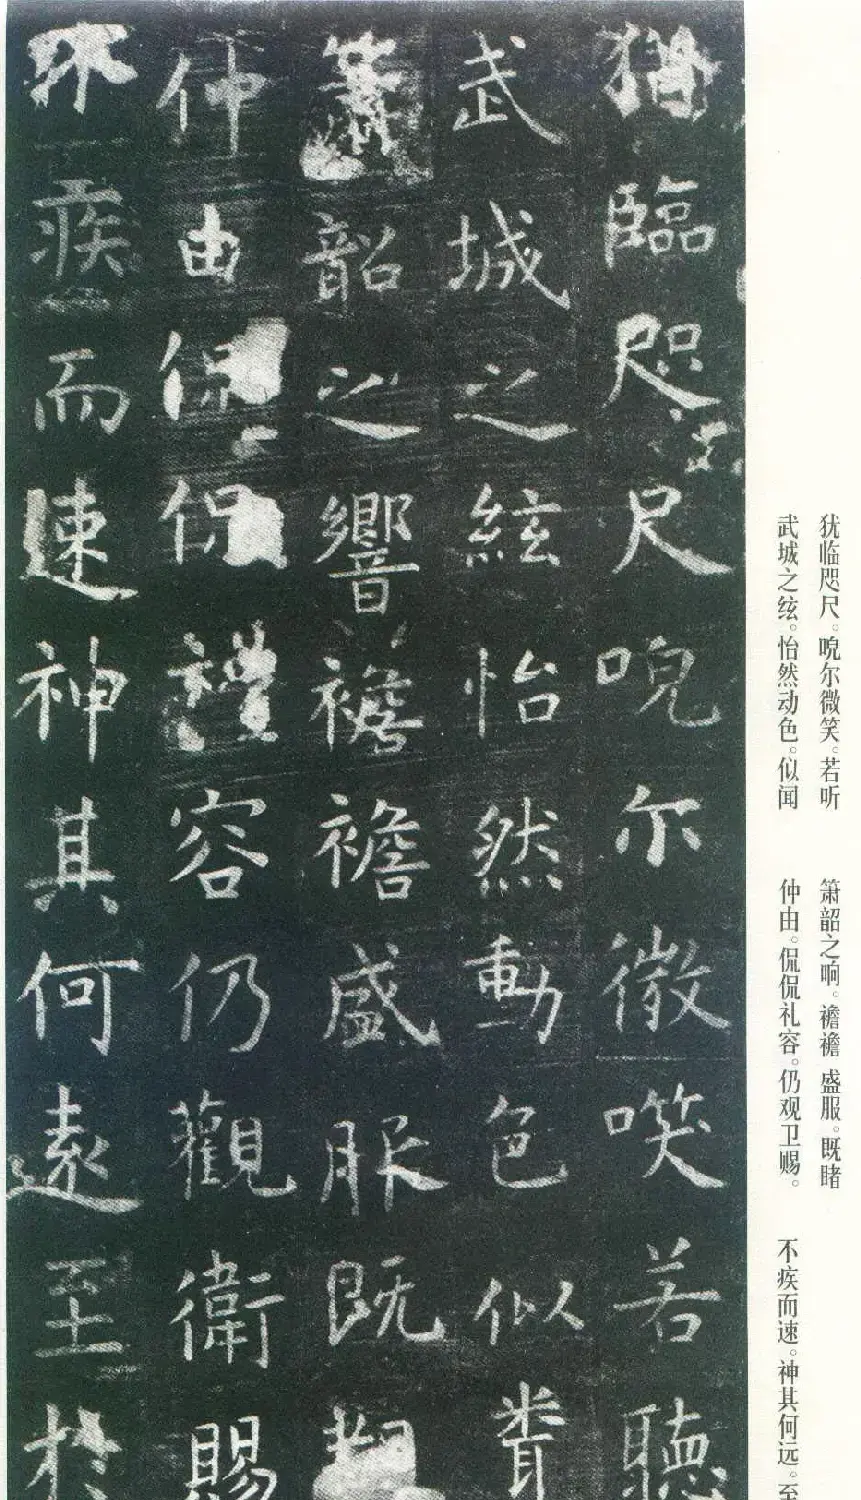 犹临咫尺。哯尔微笑。若听
武城之絃。怡然动色。似闻
箫韶之响。襜襜 盛服。既睹
仲由。侃侃礼容。仍观卫赐。
不疾而速。神其何远。至
猶臨咫尺哯尔微㗛若聽
武城之絃怡然動色似
簫韶之響襜襜盛服既
仲由侃侃禮容仍觀衛賜
不疾而速神其何遠至於